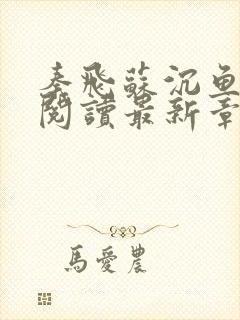 秦飛蘇沉魚
閱讀最新章
馬愛農